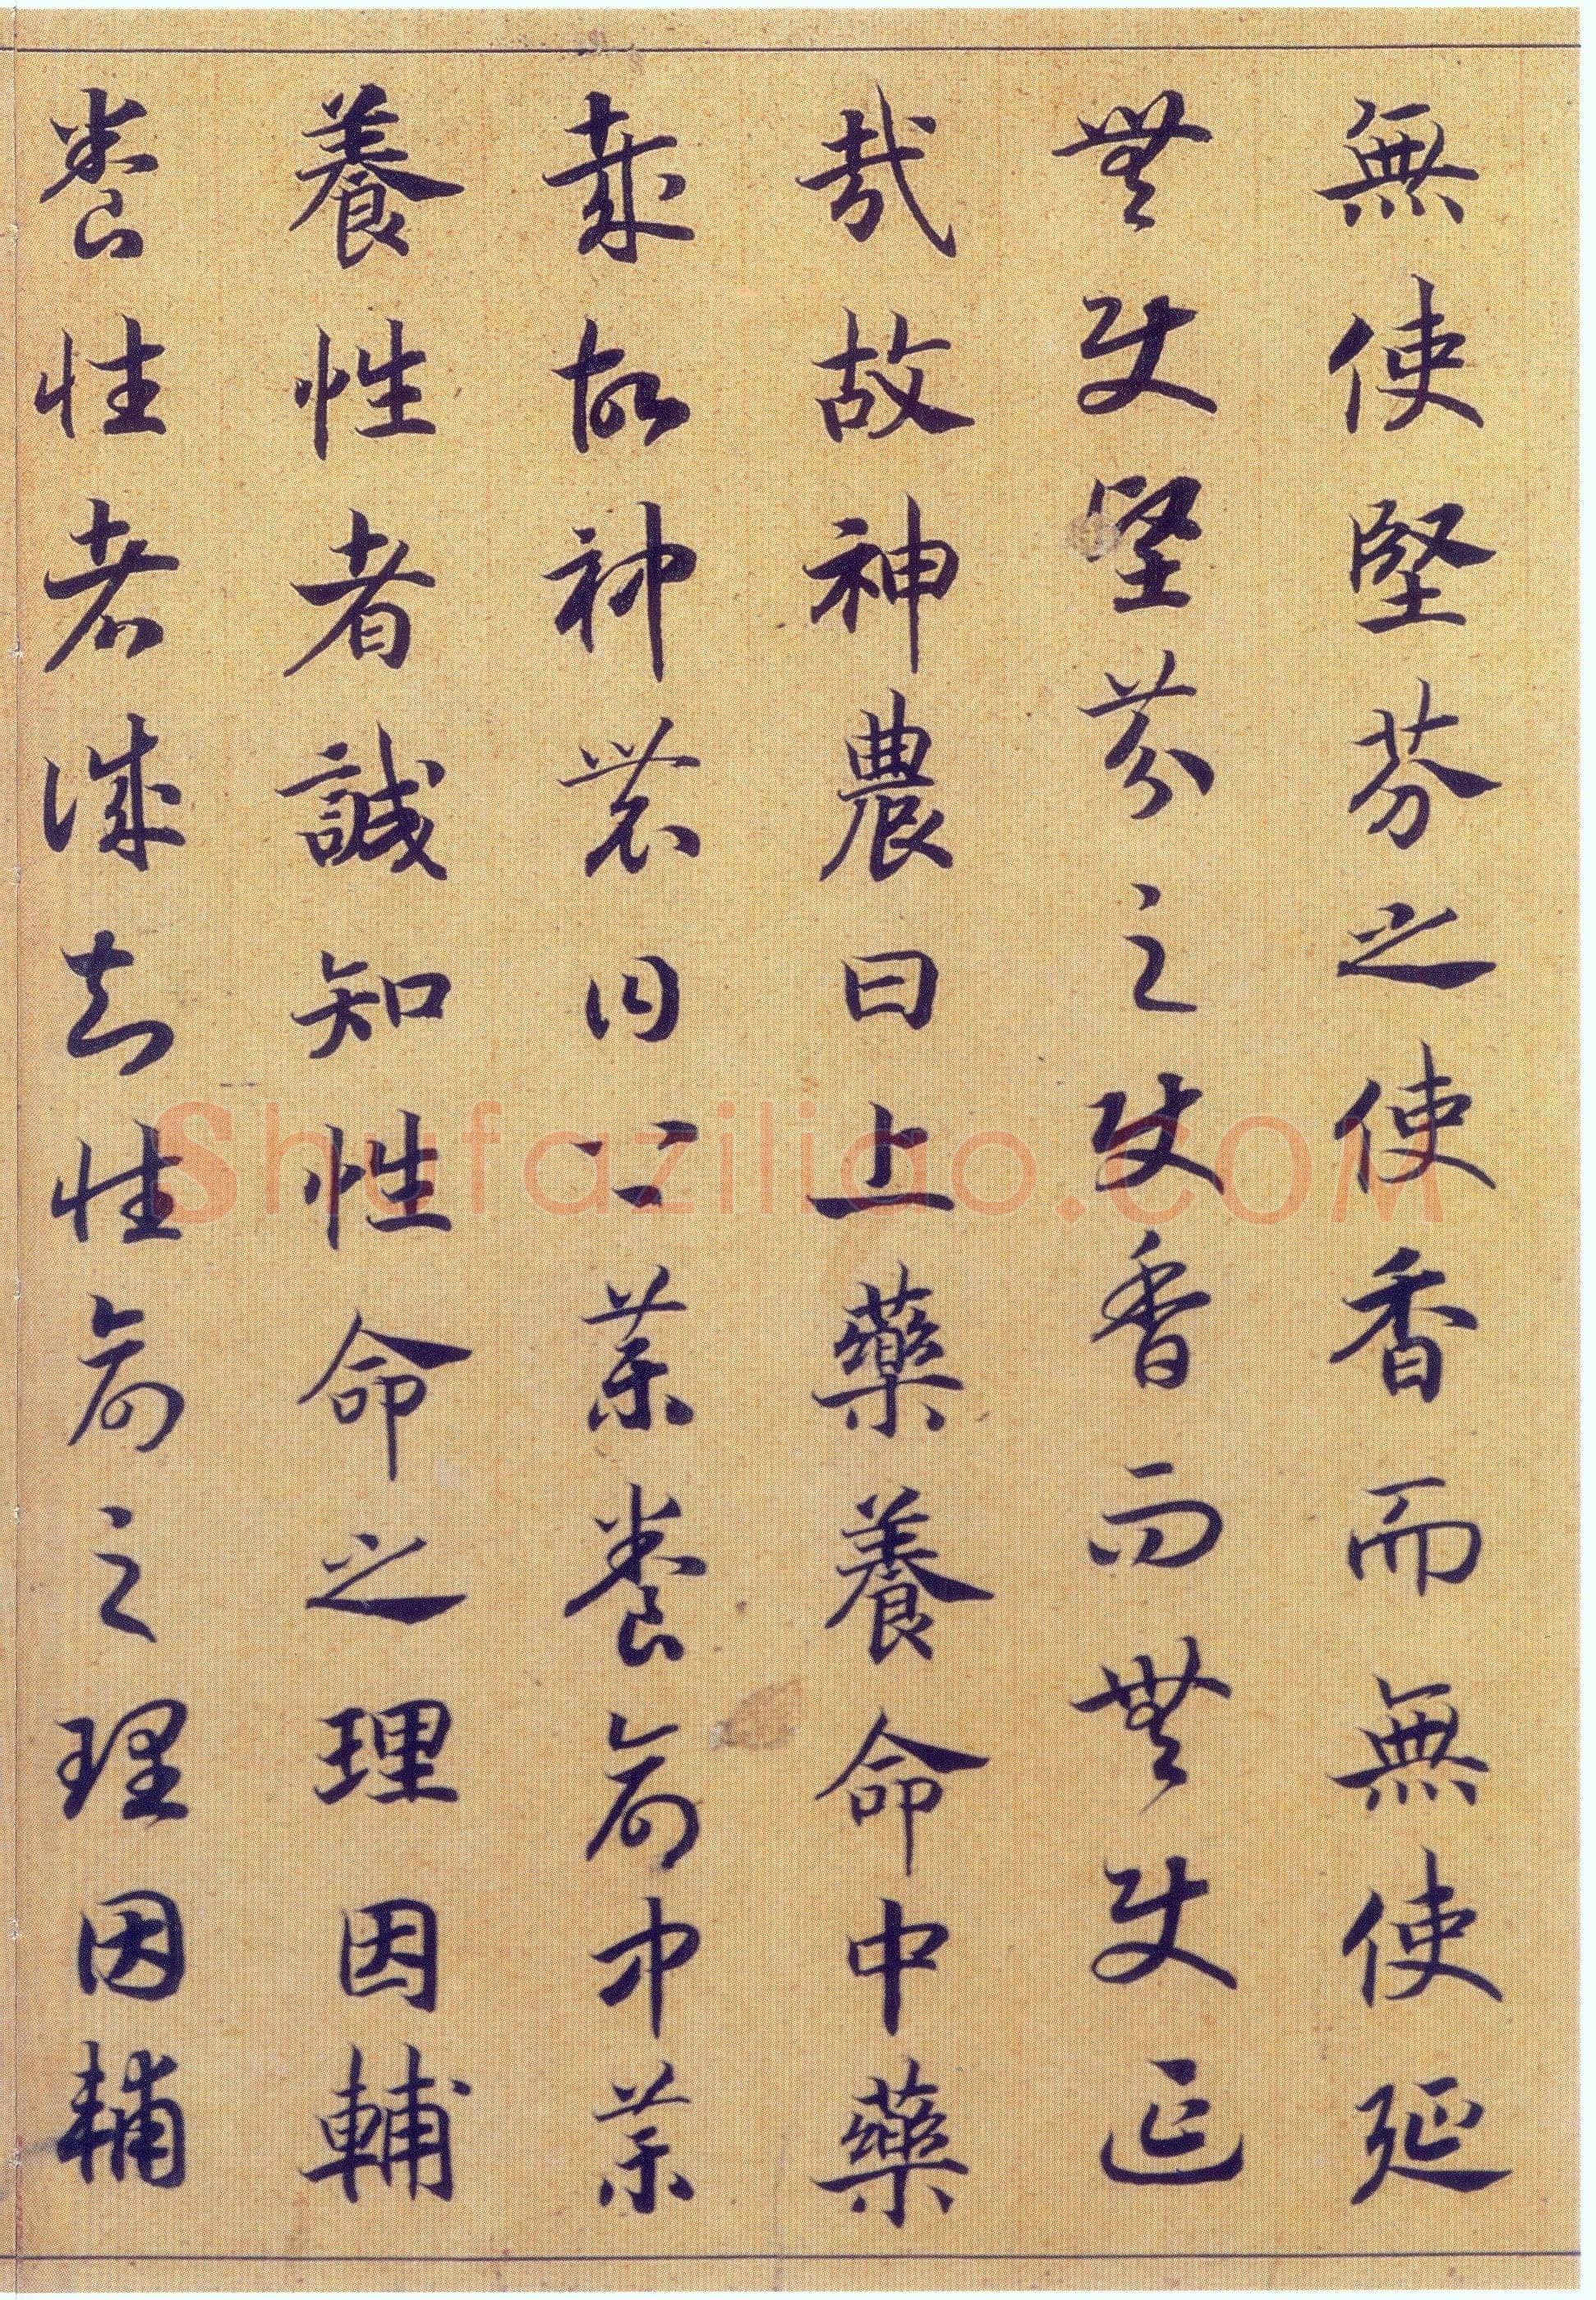 無使堅芬之使香而無使延
無使堅芬之使香而無使延
哉故神農曰上藥養命中藥
哉故神農曰上藥養命中藥
養性者誠知性命之理因輔
養性者誠知性命之理因輔
shufaziliao.com